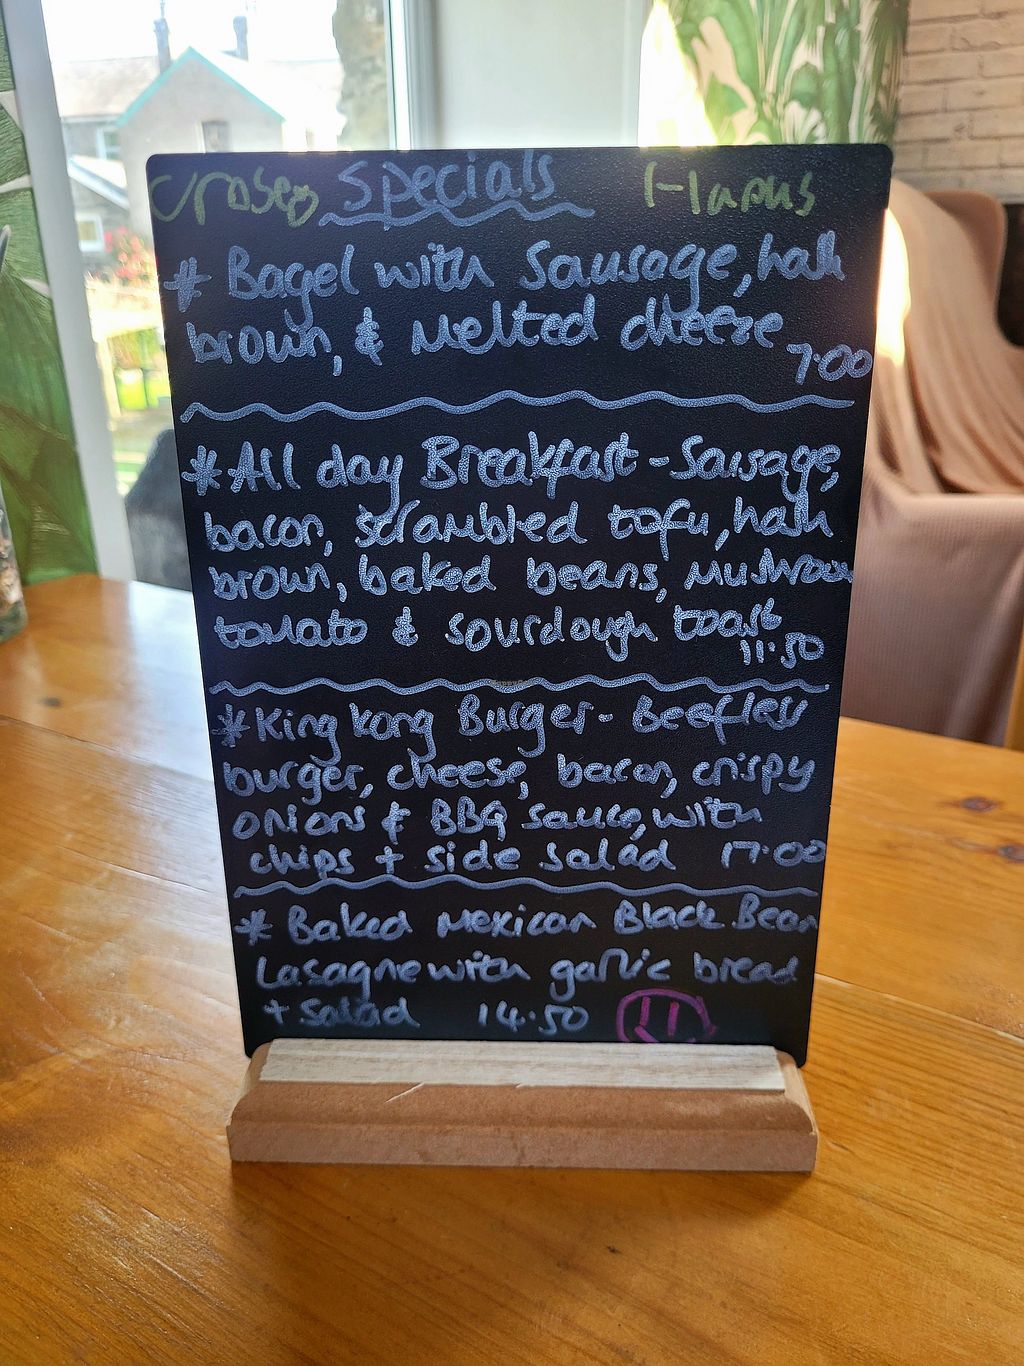 Specials
* Bagel with Sausage, hash
brown, & Melted cheese
7.00
* All day Breakfast - Sausage,
bacon, scrambled tofu, hash
brown, baked beans, Mushroom
tomato & sourdough toast
11.50
* King Kong Burger - Beefless
burger, cheese, bacon, crispy
onions & BBQ sauce, with
chips + side salad 17.00
* Baked Mexican Black Bean
Lasagne with garlic bread
+ Salad 14.50